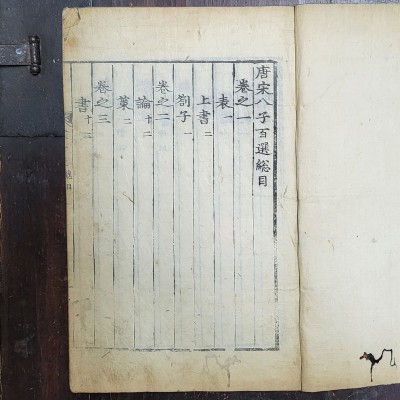 唐宋八子百選總目
卷之一
表一
上書二
劄子一
卷之二
論十二
卷之三
書十二